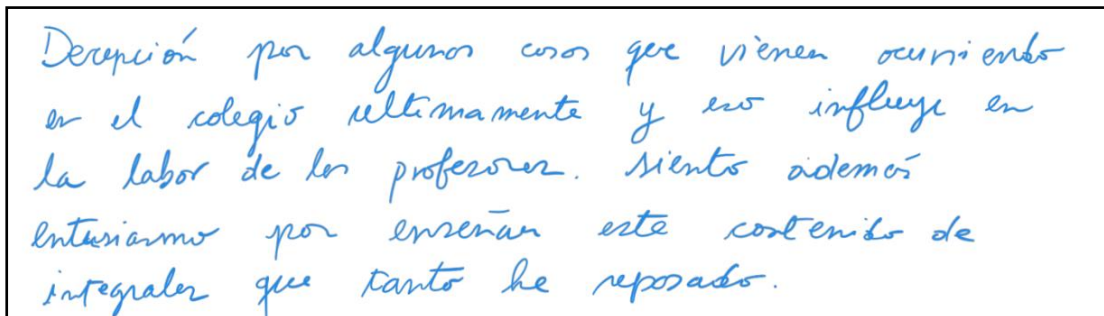 Decepción por algunas cosas que vienen ocurriendo
en el colegio ultimamente y eso influye en
la labor de los profesores. siento además
entusiasmo por enseñar este contenido de
integrales que tanto he repasado.